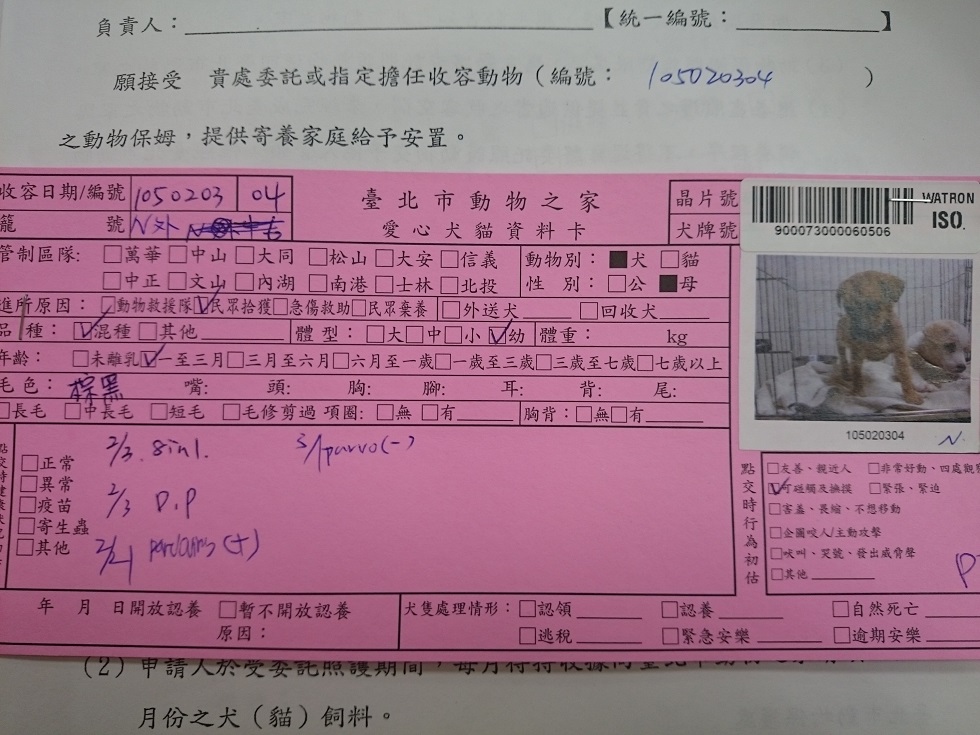 負責人：
【統一編號：】
願接受 貴處委託或指定擔任收容動物（編號： 105020304 ）
之動物保姆，提供寄養家庭給予安置。
收容日期/編號 1050203 04
臺北市動物之家
晶片號
WATRON
ISO.
900073000060506
籠 號 N外
愛心犬貓資料卡
犬牌號
管制區隊: □萬華 □中山 □大同 □松山 □大安 □信義 動物別： ■犬 □貓
□中正 □文山 □內湖 □南港 □士林 □北投 性 別： □公 ■母
進所原因：□動物救援隊 ☑民眾拾獲 □急傷救助 □民眾棄養 □外送犬 □回收犬
品 種： ☑混種 □其他 體 型： □大 □中 □小 ☑幼 體重： kg
年齡： □未離乳 ☑一至三月 □三月至六月 □六月至一歲 □一歲至三歲 □三歲至七歲 □七歲以上
毛色： 棕黑 嘴: 頭: 胸: 腳: 耳: 背: 尾:
□長毛 □中長毛 □短毛 □毛修剪過 項圈: □無 □有 胸背: □無 □有
105020304 N.
2/3 8in1. 3/1 parvo(-)
□正常
□異常
2/3 D.P
□疫苗
□寄生蟲
□其他 2/21 (+)
點交時行為初估
□友善、親近人 □非常好動、四處觀
☑可碰觸及撫摸 □緊張、緊迫
□害羞、畏縮、不想移動
□企圖咬人/主動攻擊
□吠叫、哭號、發出威脅聲
□其他
年 月 日開放認養 □暫不開放認養
原因：
犬隻處理情形： □認領 □認養 □自然死亡
□逃脫 □緊急安樂 □逾期安樂
（2）申請人於受委託照護期間，每月得持收據向臺北市動物之家
月份之犬（貓）飼料。